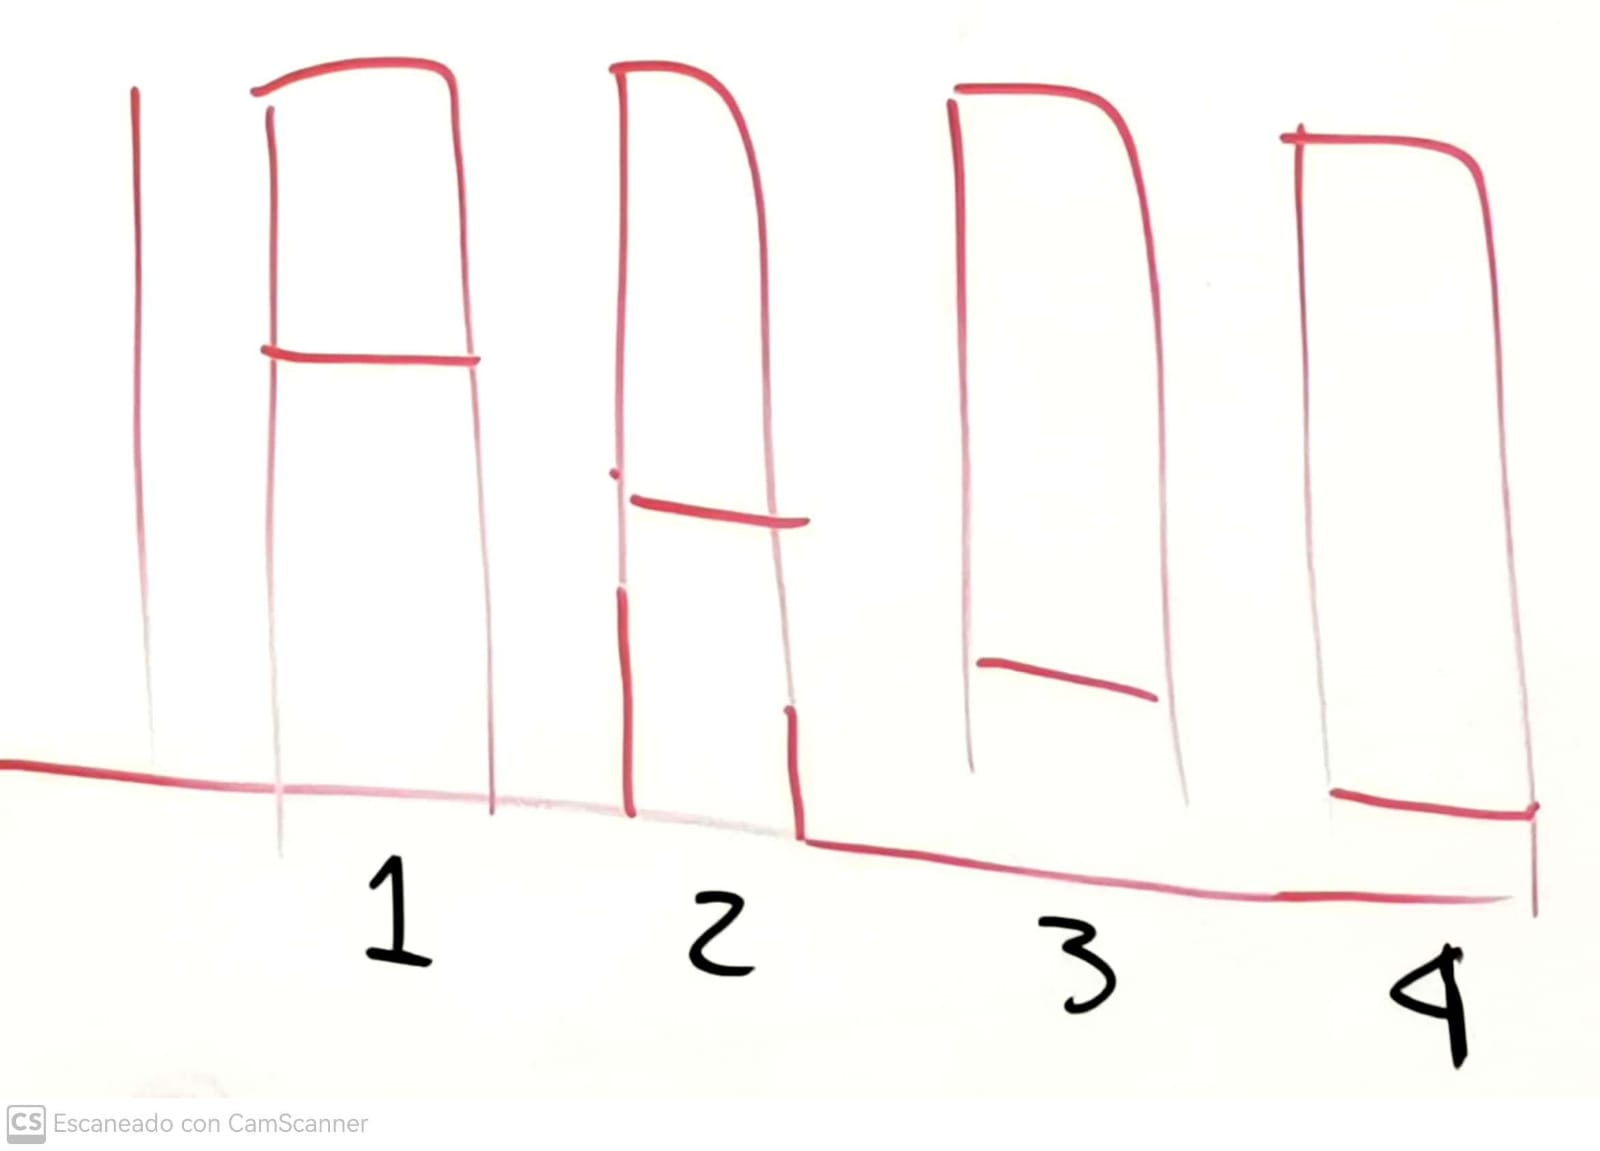 1 2 3 4
CS Escaneado con CamScanner